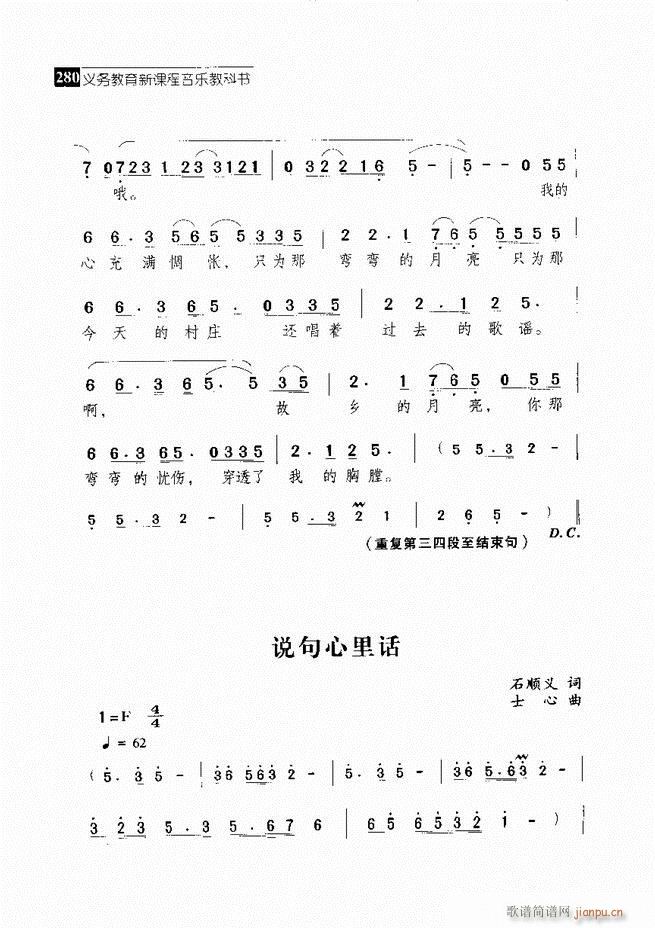 280 义务教育新课程音乐教科书
7 0723 1 23 3121 | 0 32216 5 - | 5 - - 0 55
哦。 我的
6 6. 3 565 5335 | 2 2. 1 765 5555
心充 满惆 怅, 只为那 弯弯的月 亮 只为那
6 66. 3 65. 0335 | 2 2. 1 25.
今天 的村庄 还唱着 过去 的歌谣。
6 66. 36 5. 5 35 | 2. 1 765 0 55
啊, 故 乡 的月亮, 你那
6 66.3 65. 0335 | 2. 1 25. | (5 5. 3 2 -
弯弯的忧伤, 穿透了 我 的胸膛。
5 5. 3 2 - | 55. 3 2 1 | 2 6 5 - ) ‖
(重复第三四段至结束句) D.C.
说句心里话
石顺义 词
士 心 曲
1=F 4/4
♩= 62
( 5. 3 5 - | 36 563 2 - | 5. 3 5 - | 36 5.63 2 - |
3 23 5. 3 5. 676 6 | 65 6532 1 - ) |
歌谱简谱网
jianpu.cn